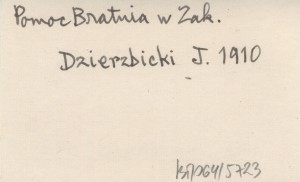 Pomoc Bratnia w Zak.
Dzierzbicki J. 1910
/5723